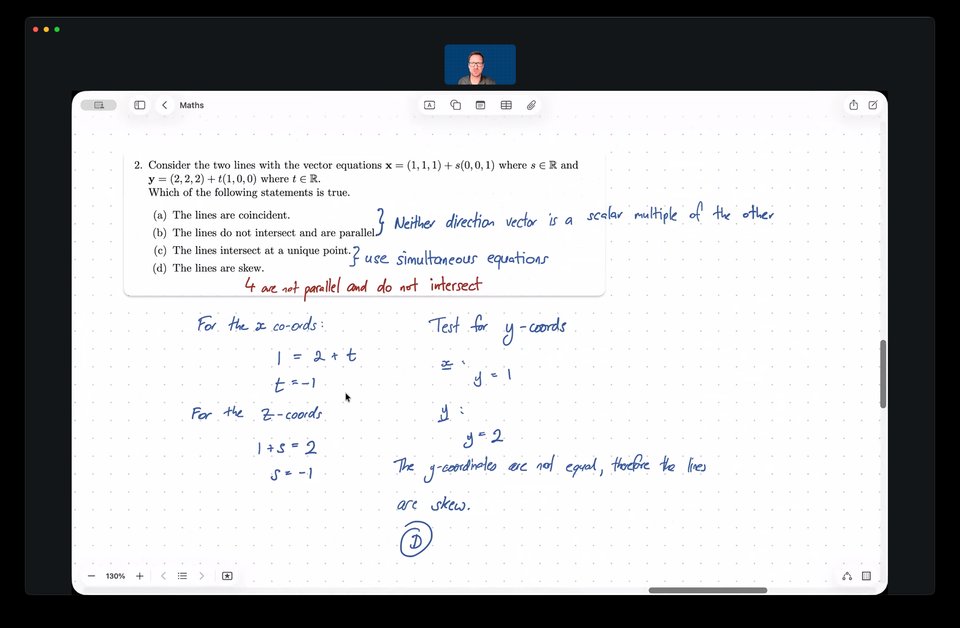 Maths
2. Consider the two lines with the vector equations x = (1, 1, 1) + s(0, 0, 1) where s ∈ ℝ and
y = (2, 2, 2) + t(1, 0, 0) where t ∈ ℝ.
Which of the following statements is true.
(a) The lines are coincident.
(b) The lines do not intersect and are parallel.
} Neither direction vector is a scalar multiple of the other
(c) The lines intersect at a unique point.
(d) The lines are skew.
} use simultaneous equations
↳ are not parallel and do not intersect
For the x co-ords:
1 = 2 + t
t = -1
For the z-coords
1 + s = 2
s = -1
Test for y-coords
x :
y = 1
y :
y = 2
The y-coordinates are not equal, therefore the lines
are skew.
D
130%